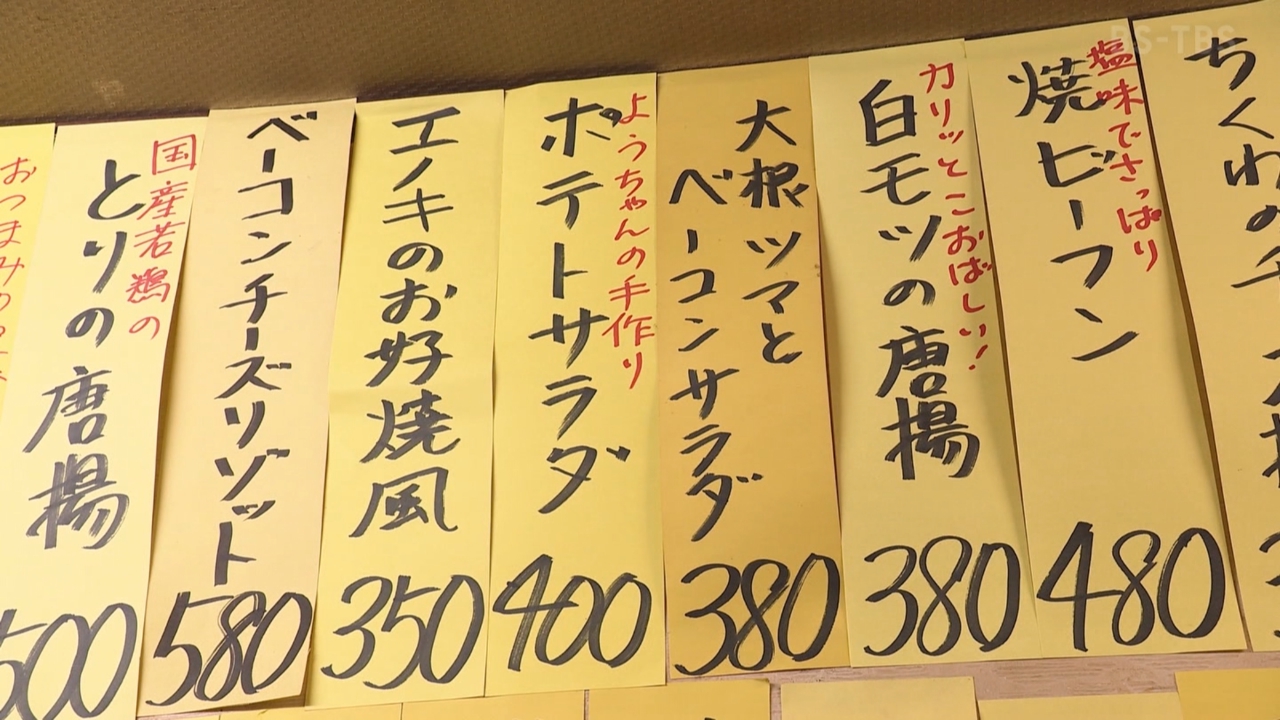 BS-TBS
ちくわの
塩味でさっぱり
焼ビーフン
480
カリッとこおばしい!
白モツの唐揚
380
大根ツマと
ベーコンサラダ
380
ようちゃんの手作り
ポテトサラダ
400
エノキのお好焼風
350
ベーコンチーズリゾット
580
国産若鶏の
とりの唐揚
500
おつまみ